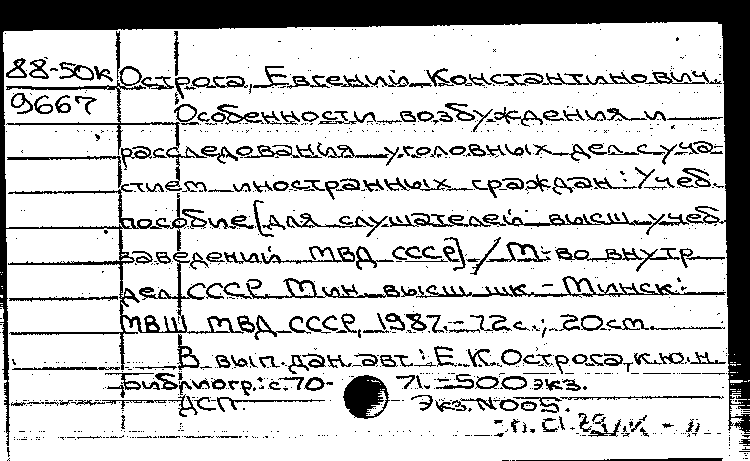 88-50к Острога, Евгений Константинович.
9667 Особенности возбуждения и
расследования уголовных дел с уча-
стием иностранных граждан: Учеб.
пособие [для слушателей высш. учеб.
заведений МВД СССР] / М-во внутр.
дел СССР. Мин. высш. шк. - Минск:
МВШ МВД СССР, 1987. - 72 с.; 20 см.
В вып. дан. авт.: Е.К. Острога, к.ю.н.
Библиогр.: с. 70-71. - 500 экз.
ДСП. Экз. N 005.